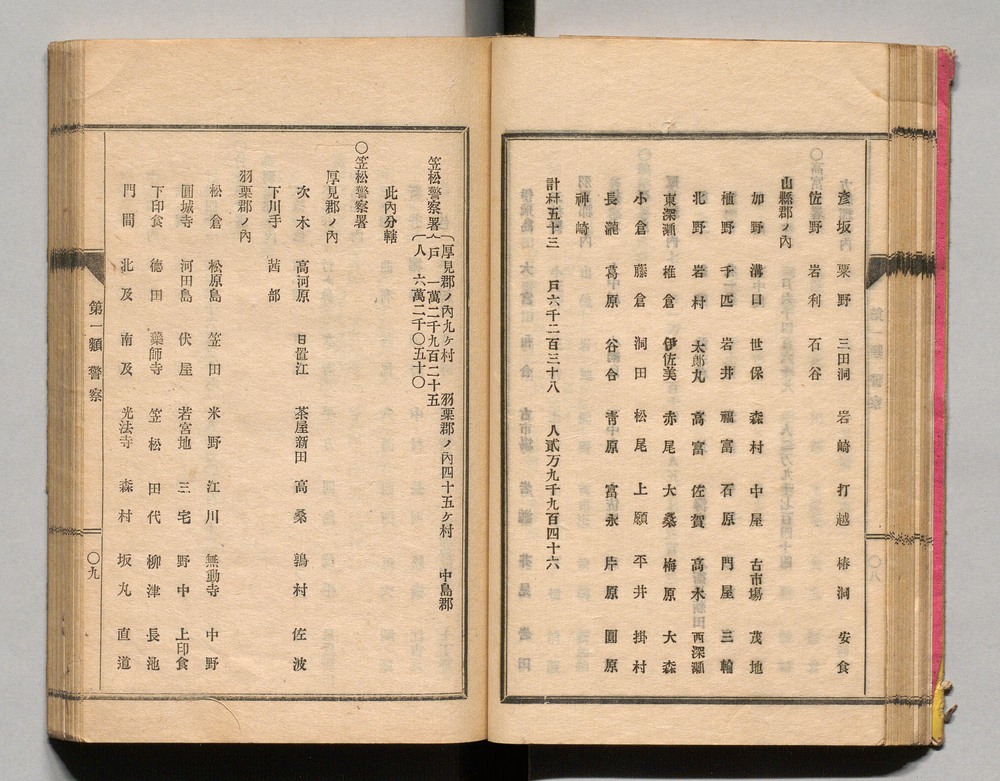 彦坂 粟野 三田洞 岩崎 打越 椿洞 安食
佐野 岩利 石谷
山縣郡ノ內
加野 溝口 世保 森村 中屋 古市場 茂地
植野 千匹 岩井 福富 石原 門屋 三輪
北野 岩村 太郎丸 高富 佐賀 高木 西深瀨
東深瀨 椎倉 伊佐美 赤尾 大桑 梅原 大森
小倉 藤倉 洞田 松尾 上願 平井 掛村
長瀧 葛原 谷合 靑原 富永 岸原 圓原
神崎
計村五十三 戶六千二百三十八 人貳万九千九百四十六
〇八
第一類 警察
笠松警察署 厚見郡ノ內九ヶ村 羽栗郡ノ內四十五ヶ村 中島郡
戶 一萬二千九百二十五
人 六萬二千〇五十〇
此內分轄
〇笠松警察署
厚見郡ノ內
次木 高河原 日置江 茶屋新田 高桑 鶉村 佐波
下川手 茜部
羽栗郡ノ內
松倉 松原島 笠田 米野 江川 無動寺 中野
圓城寺 河田島 伏屋 若宮地 三宅 野中 上印食
下印食 德田 藥師寺 笠松 田代 柳津 長池
門間 北及 南及 光法寺 森村 坂丸 直道
第一類 警察
〇九